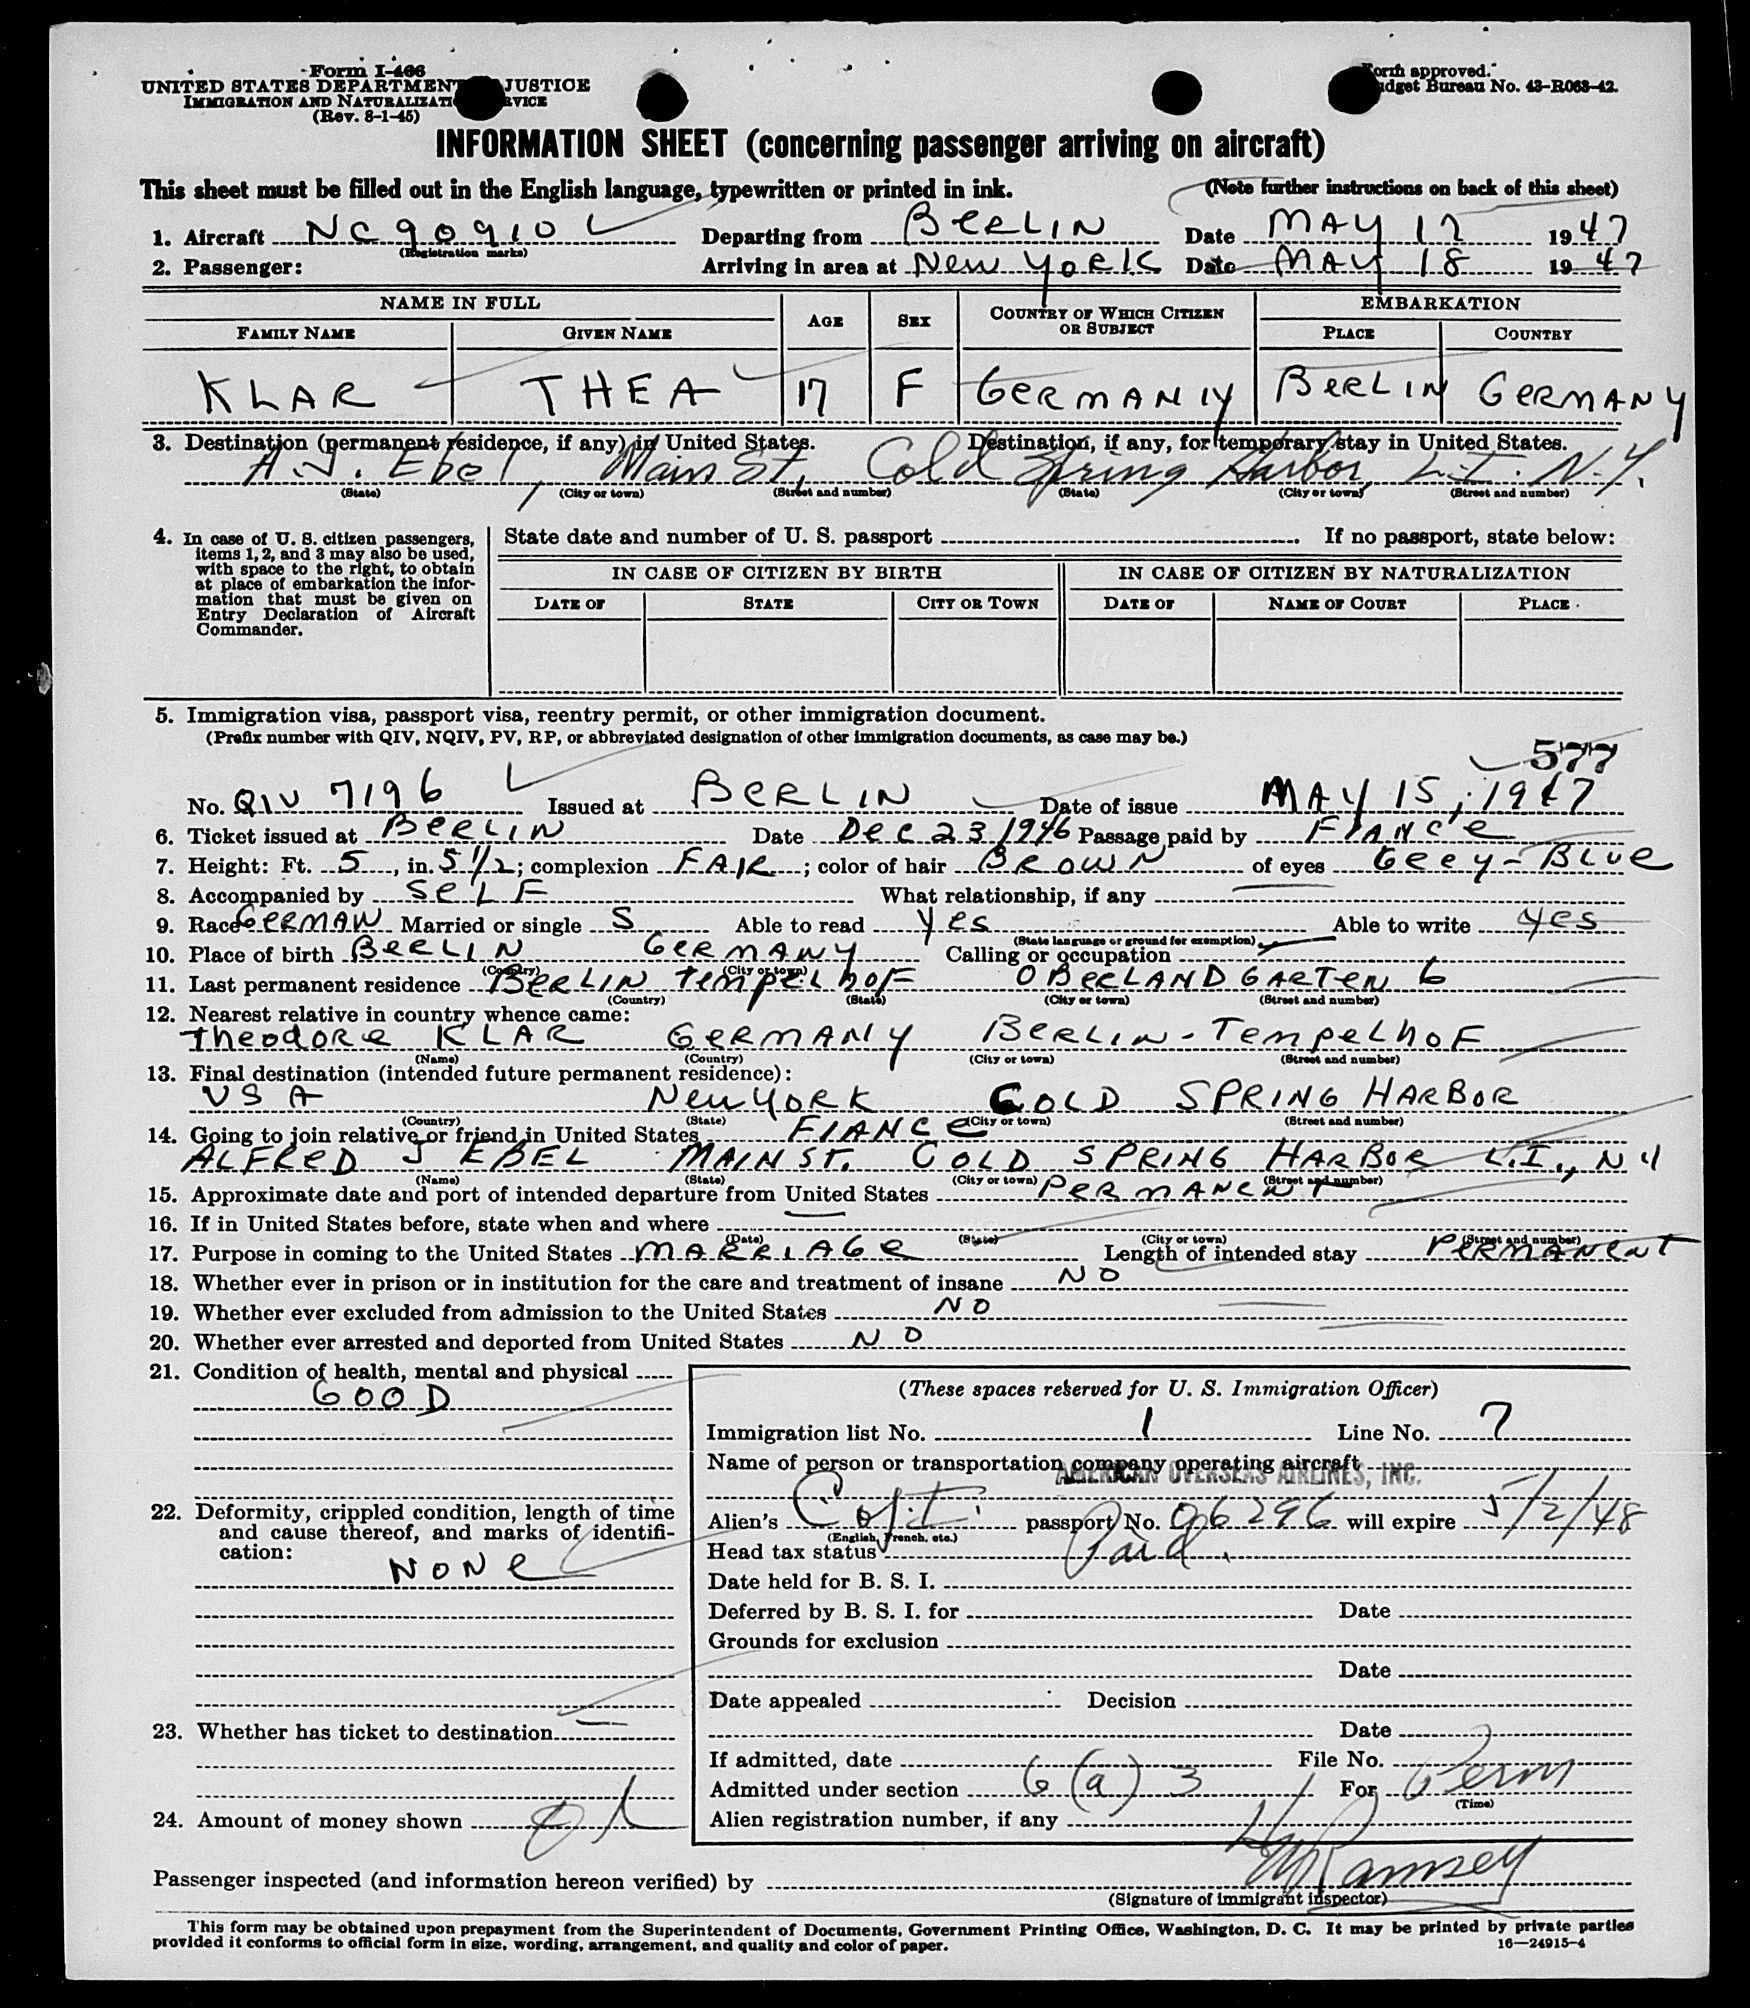 Form I-466
UNITED STATES DEPARTMENT JUSTICE
IMMIGRATION AND NATURALIZATI RVICE
(Rev. 8-1-45)
Form approved.
dget Bureau No. 43-R063-42.
INFORMATION SHEET (concerning passenger arriving on aircraft)
This sheet must be filled out in the English language, typewritten or printed in ink. (Note further instructions on back of this sheet)
1. Aircraft NC90910 Departing from BERLIN Date MAY 17 1947
(Registration marks)
2. Passenger: Arriving in area at NEW YORK Date MAY 18 1947
NAME IN FULL AGE SEX COUNTRY OF WHICH CITIZEN OR SUBJECT EMBARKATION
FAMILY NAME GIVEN NAME PLACE COUNTRY
KLAR THEA 17 F GERMANY BERLIN GERMANY
3. Destination (permanent residence, if any) in United States. Destination, if any, for temporary stay in United States.
A. J. Ebel, Main St, Cold Spring Harbor, L.I. N.Y.
(State) (City or town) (Street and number) (State) (City or town) (Street and number)
4. In case of U. S. citizen passengers, items 1, 2, and 3 may also be used, with space to the right, to obtain at place of embarkation the information that must be given on Entry Declaration of Aircraft Commander.
State date and number of U. S. passport If no passport, state below:
IN CASE OF CITIZEN BY BIRTH IN CASE OF CITIZEN BY NATURALIZATION
DATE OF STATE CITY OR TOWN DATE OF NAME OF COURT PLACE
5. Immigration visa, passport visa, reentry permit, or other immigration document.
(Prefix number with QIV, NQIV, PV, RP, or abbreviated designation of other immigration documents, as case may be.)
577
No. QIV 7196 Issued at BERLIN Date of issue MAY 15, 1947
6. Ticket issued at BERLIN Date DEC 23 1946 Passage paid by FIANCE
7. Height: Ft. 5, in. 5 1/2; complexion FAIR; color of hair BROWN of eyes GREY-BLUE
8. Accompanied by SELF What relationship, if any
9. Race GERMAN Married or single S Able to read YES Able to write YES
(State language or ground for exemption)
10. Place of birth BERLIN GERMANY Calling or occupation
(Country) (City or town)
11. Last permanent residence BERLIN TEMPELHOF OBERLANDGARTEN 6
(Country) (State) (City or town) (Street and number)
12. Nearest relative in country whence came:
THEODORE KLAR GERMANY BERLIN-TEMPELHOF
(Name) (Country) (City or town) (Street and number)
13. Final destination (intended future permanent residence):
USA NEW YORK COLD SPRING HARBOR
(Country) (State) (City or town) (Street and number)
14. Going to join relative or friend in United States FIANCE
ALFRED J EBEL MAIN ST. COLD SPRING HARBOR L.I., NY
(Name) (State) (City or town) (Street and number)
15. Approximate date and port of intended departure from United States PERMANENT
16. If in United States before, state when and where
(Date) (State) (City or town) (Street and number)
17. Purpose in coming to the United States MARRIAGE Length of intended stay PERMANENT
18. Whether ever in prison or in institution for the care and treatment of insane NO
19. Whether ever excluded from admission to the United States NO
20. Whether ever arrested and deported from United States NO
21. Condition of health, mental and physical
GOOD
22. Deformity, crippled condition, length of time and cause thereof, and marks of identification:
NONE
23. Whether has ticket to destination
24. Amount of money shown
(These spaces reserved for U. S. Immigration Officer)
Immigration list No. 1 Line No. 7
Name of person or transportation company operating aircraft
AMERICAN OVERSEAS AIRLINES, INC.
Alien's passport No. 06296 will expire 5/2/48
(English, French, etc.)
Head tax status Paid.
Date held for B. S. I.
Deferred by B. S. I. for Date
Grounds for exclusion
Date
Date appealed Decision
Date
If admitted, date File No.
Admitted under section 6(a)3 For Perm
(Time)
Alien registration number, if any
Passenger inspected (and information hereon verified) by Ramsey
(Signature of immigrant inspector)
This form may be obtained upon prepayment from the Superintendent of Documents, Government Printing Office, Washington, D. C. It may be printed by private parties
provided it conforms to official form in size, wording, arrangement, and quality and color of paper.
16—24915-4